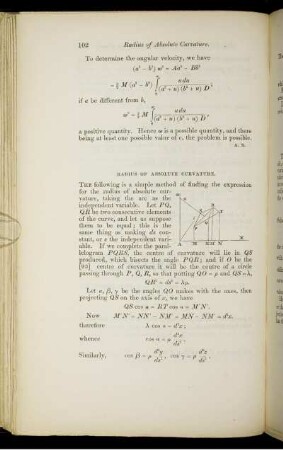 102 Radius of Absolute Curvature.
To determine the angular velocity, we have
if a be different from b,
a positive quantity. Hence w is a possible quantity, and there
being at least one possible value of c, the problem is possible.
RADIUS OF ABSOLUTE CURVATURE.
THE following is a simple method of finding the expression
for the radius of absolute curvature,
taking the arc as the
independent variable. Let PQ,
QR be two consecutive elements
of the curve, and let us suppose
them to be equal; this is the
same thing as making ds constant,
or s the independent variable.
If we complete the parallelogram
PQRS, the centre of curvature will lie in QS
produced, which bisects the angle PQR; and if O be the
centre of curvature it will be the centre of a circle
passing through P, Q, R, so that putting QO = ρ and QS = λ,
QR² = ds² = λρ.
Let α, β, γ be the angles QO makes with the axes, then
projecting QS on the axis of x, we have
QS cos α = RT cos α = M'N'.
Now M'N' = NN' - NM' = MN - NM' = d²x,
therefore λ cos α = d²x,
whence cos α = ρ d²x/ds²,
Similarly, cos β = ρ d²y/ds², cos γ = ρ d²z/ds².